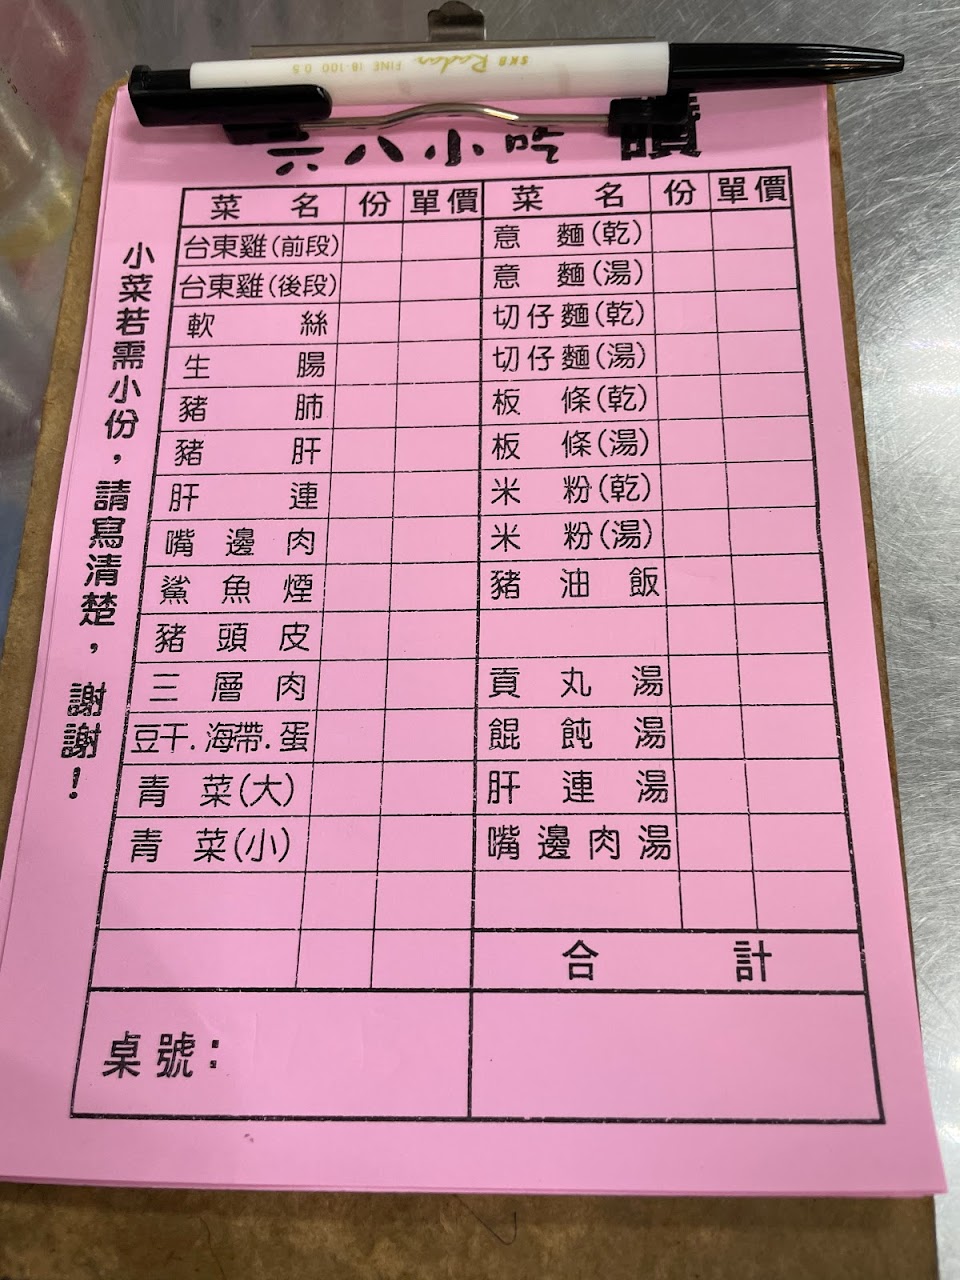 SKB Radar FINE IB-100 0.5
六八小吃 讚
菜名 份 單價 菜名 份 單價
台東雞(前段) 意麵(乾)
台東雞(後段) 意麵(湯)
軟絲 切仔麵(乾)
生腸 切仔麵(湯)
豬肺 板條(乾)
豬肝 板條(湯)
肝連 米粉(乾)
嘴邊肉 米粉(湯)
鯊魚煙 豬油飯
豬頭皮
三層肉 貢丸湯
豆干.海帶.蛋 餛飩湯
青菜(大) 肝連湯
青菜(小) 嘴邊肉湯
合計
桌號：
小菜若需小份，請寫清楚，謝謝！